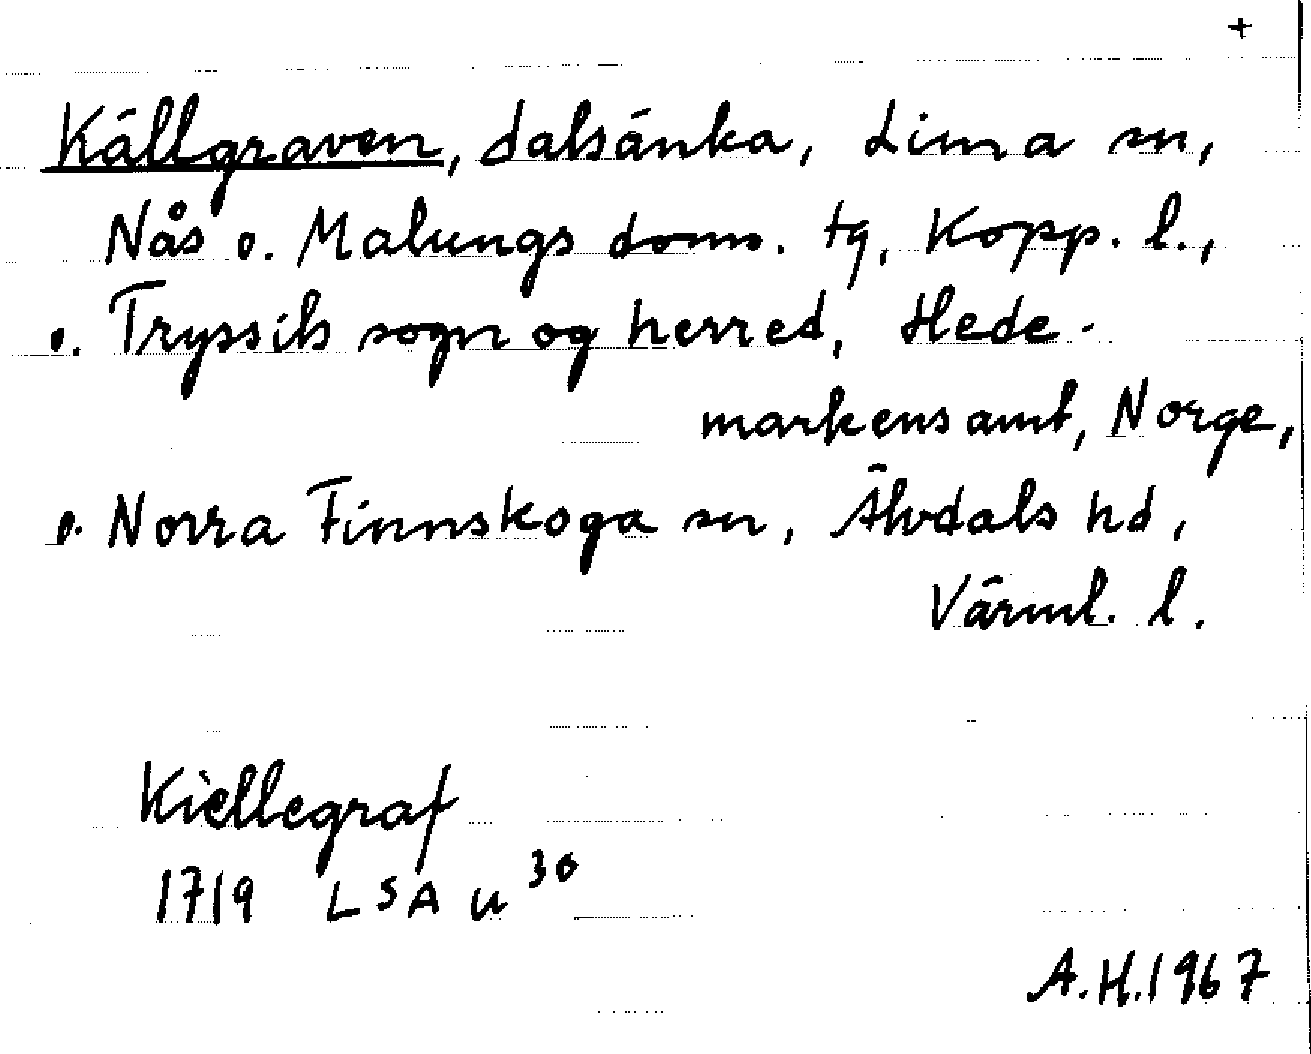 +
Källgraven, dalsänka, Lima sn,
Nås o. Malungs doms. tg, Kopp. l.,
o. Tryssils sogn og herred, Hede-
markens amt, Norge,
o. Norra Finnskoga sn, Älvdals hd,
Värml. l.
Kiellegraf
1719 LSA u 30
A.H. 1967